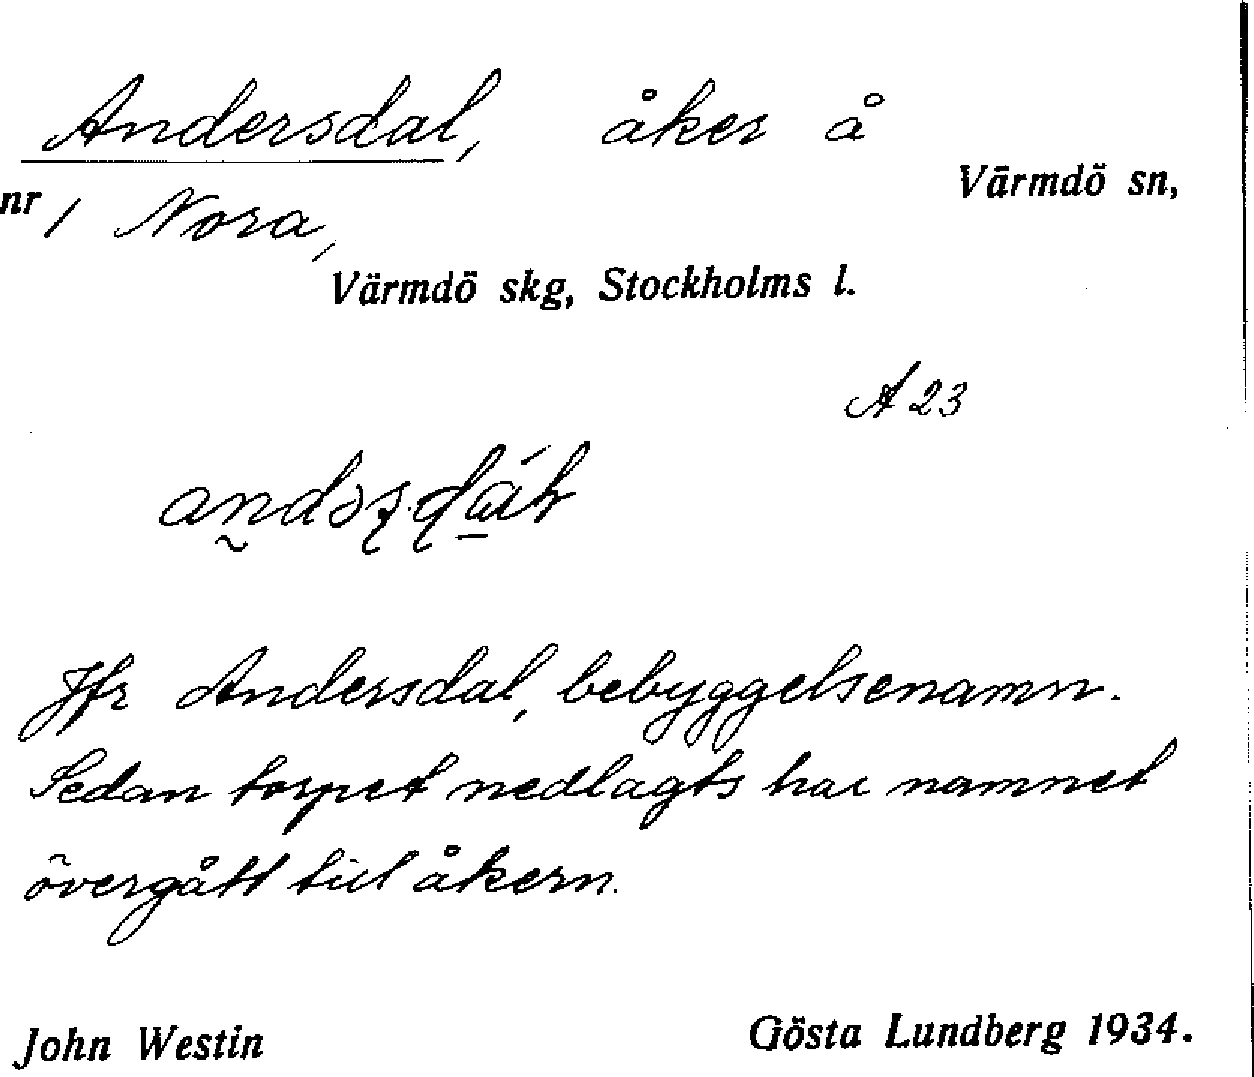 Andersdal, åker å
Värmdö sn,
nr 1 Nora,
Värmdö skg, Stockholms l.
A 23
Jfr Andersdal, bebyggelsenamn.
Sedan torpet nedlagts har namnet
övergått till åkern.
John Westin Gösta Lundberg 1934.